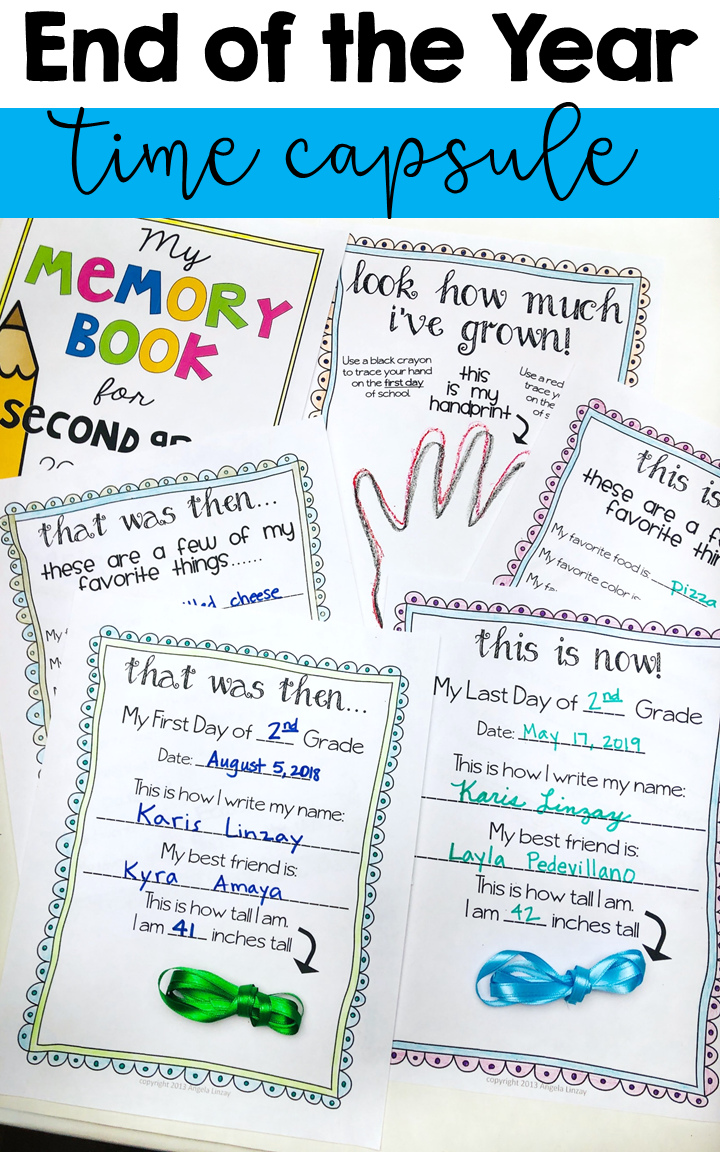 End of the Year
time capsule
My
MEMORY
BOOK
for
SECOND
look how much
i've grown!
Use a black crayon
to trace your hand
on the first day
of school.
this
is my
handprint
Use a red
trace
on the
that was then...
these are a few of my
favorite things......
cheese
this is
these are a
favorite
My favorite food is pizza
My favorite color is
My
that was then...
My First Day of 2nd Grade
Date: August 5, 2018
This is how I write my name:
Karis Linzay
My best friend is:
Kyra Amaya
This is how tall I am.
I am 41 inches tall
copyright 2013 Angela Linzay
this is now!
My Last Day of 2nd Grade
Date: May 17, 2019
This is how I write my name:
Karis Linzay
My best friend is:
Layla Pedevillano
This is how tall I am.
I am 42 inches tall
copyright 2013 Angela Linzay